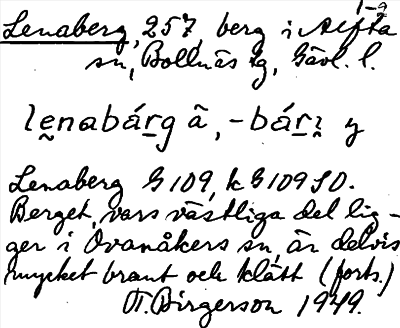 1-2
Lenaberg, 257, berg i Alfta
sn, Bollnäs tg, Gävl. l.
lenabárg â, -bárı y
Lenaberg G 109, k G 109 SO.
Berget, vars västliga del lig-
ger i Ovanåkers sn, är delvis
mycket brant och klätt (forts.)
T. Birgerson 1949.